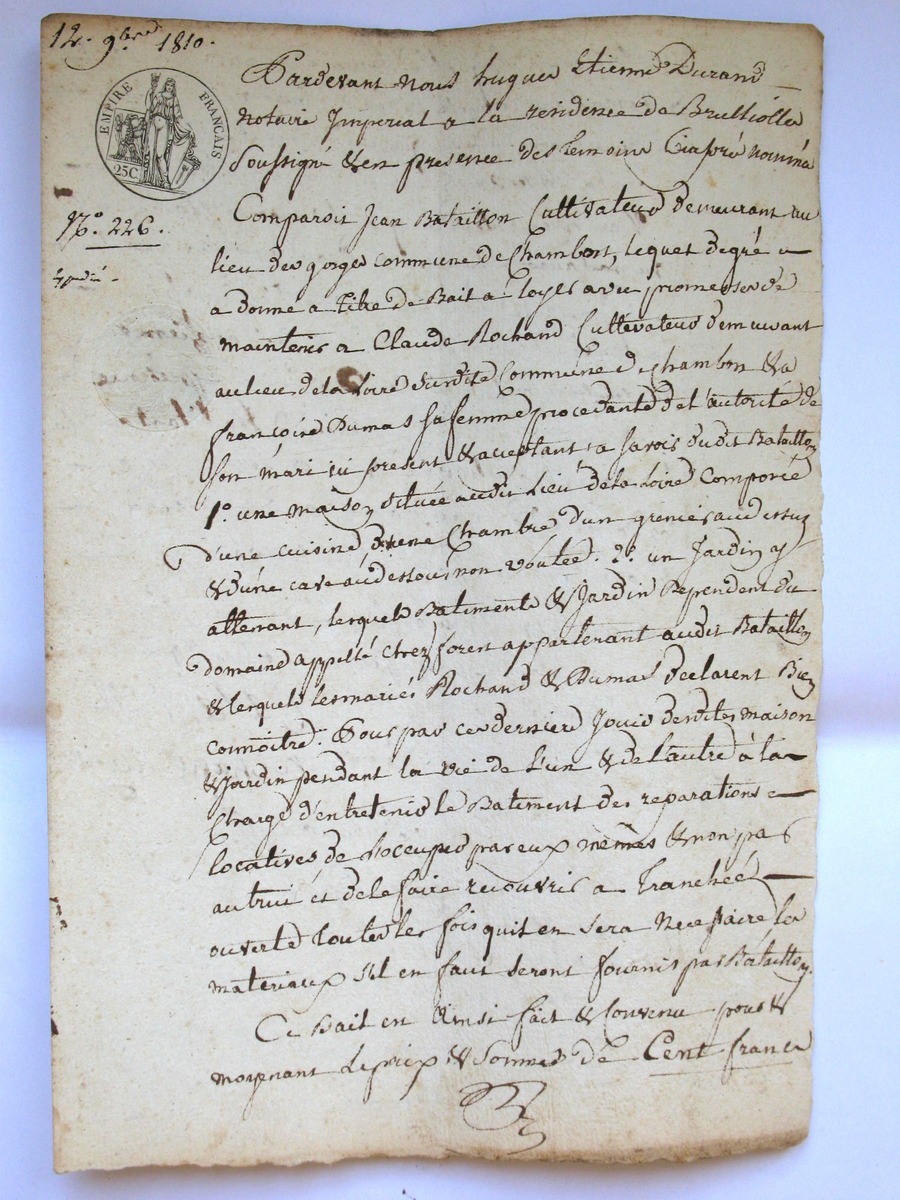 12. 9bre 1810.
EMPIRE FRANÇAIS
25C.
N.° 226.
Pardevant nous hugues Etienne Durand
notaire Imperial a la residence de Brulliolles
Soussigné & en presence des temoins Ciaprés nommés
Comparoit Jean Bataillon Cultivateur demeurant au
lieu des gorges commune de Chambost, lequel degré a
a donné a titre de Bail a loyer avec promesse de
maintenir a Claude Rochand Cultivateur demeurant
au lieu de la Loire Susdite Commune de chambon & a
françoise Dumas sa femme procedante de l'autorité de
son mari ici present & acceptant, a savoir dudit Bataillon
1.° une maison située audit Lieu de la Loire Composée
d'une cuisine, d'une Chambre d'un grenier au dessus
& d'une cave au dessous non voûtée. 2.° un Jardin y
attenant, lesquels Batiments & Jardin Dependent du
domaine appellé chez forest appartenant audit Bataillon
& lesquels les mariés Rochand & Dumas declarent Bien
connoitre. Pour par ces derniers Jouir desdites maison
& Jardin pendant la vie de l'un & de l'autre à la
Charge d'entretenir le Batiment des reparations
locatives de l'occuper par eux mêmes & non par
autrui et de le faire recouvrir a Tranchée
ouverte toutes les fois qu'il en sera Necessaire les
materiaux s'il en faut seront fournis par Bataillon.
Ce Bail est Ainsi fait & Convenu pour &
moyenant Le prix & Somme de Cent francs